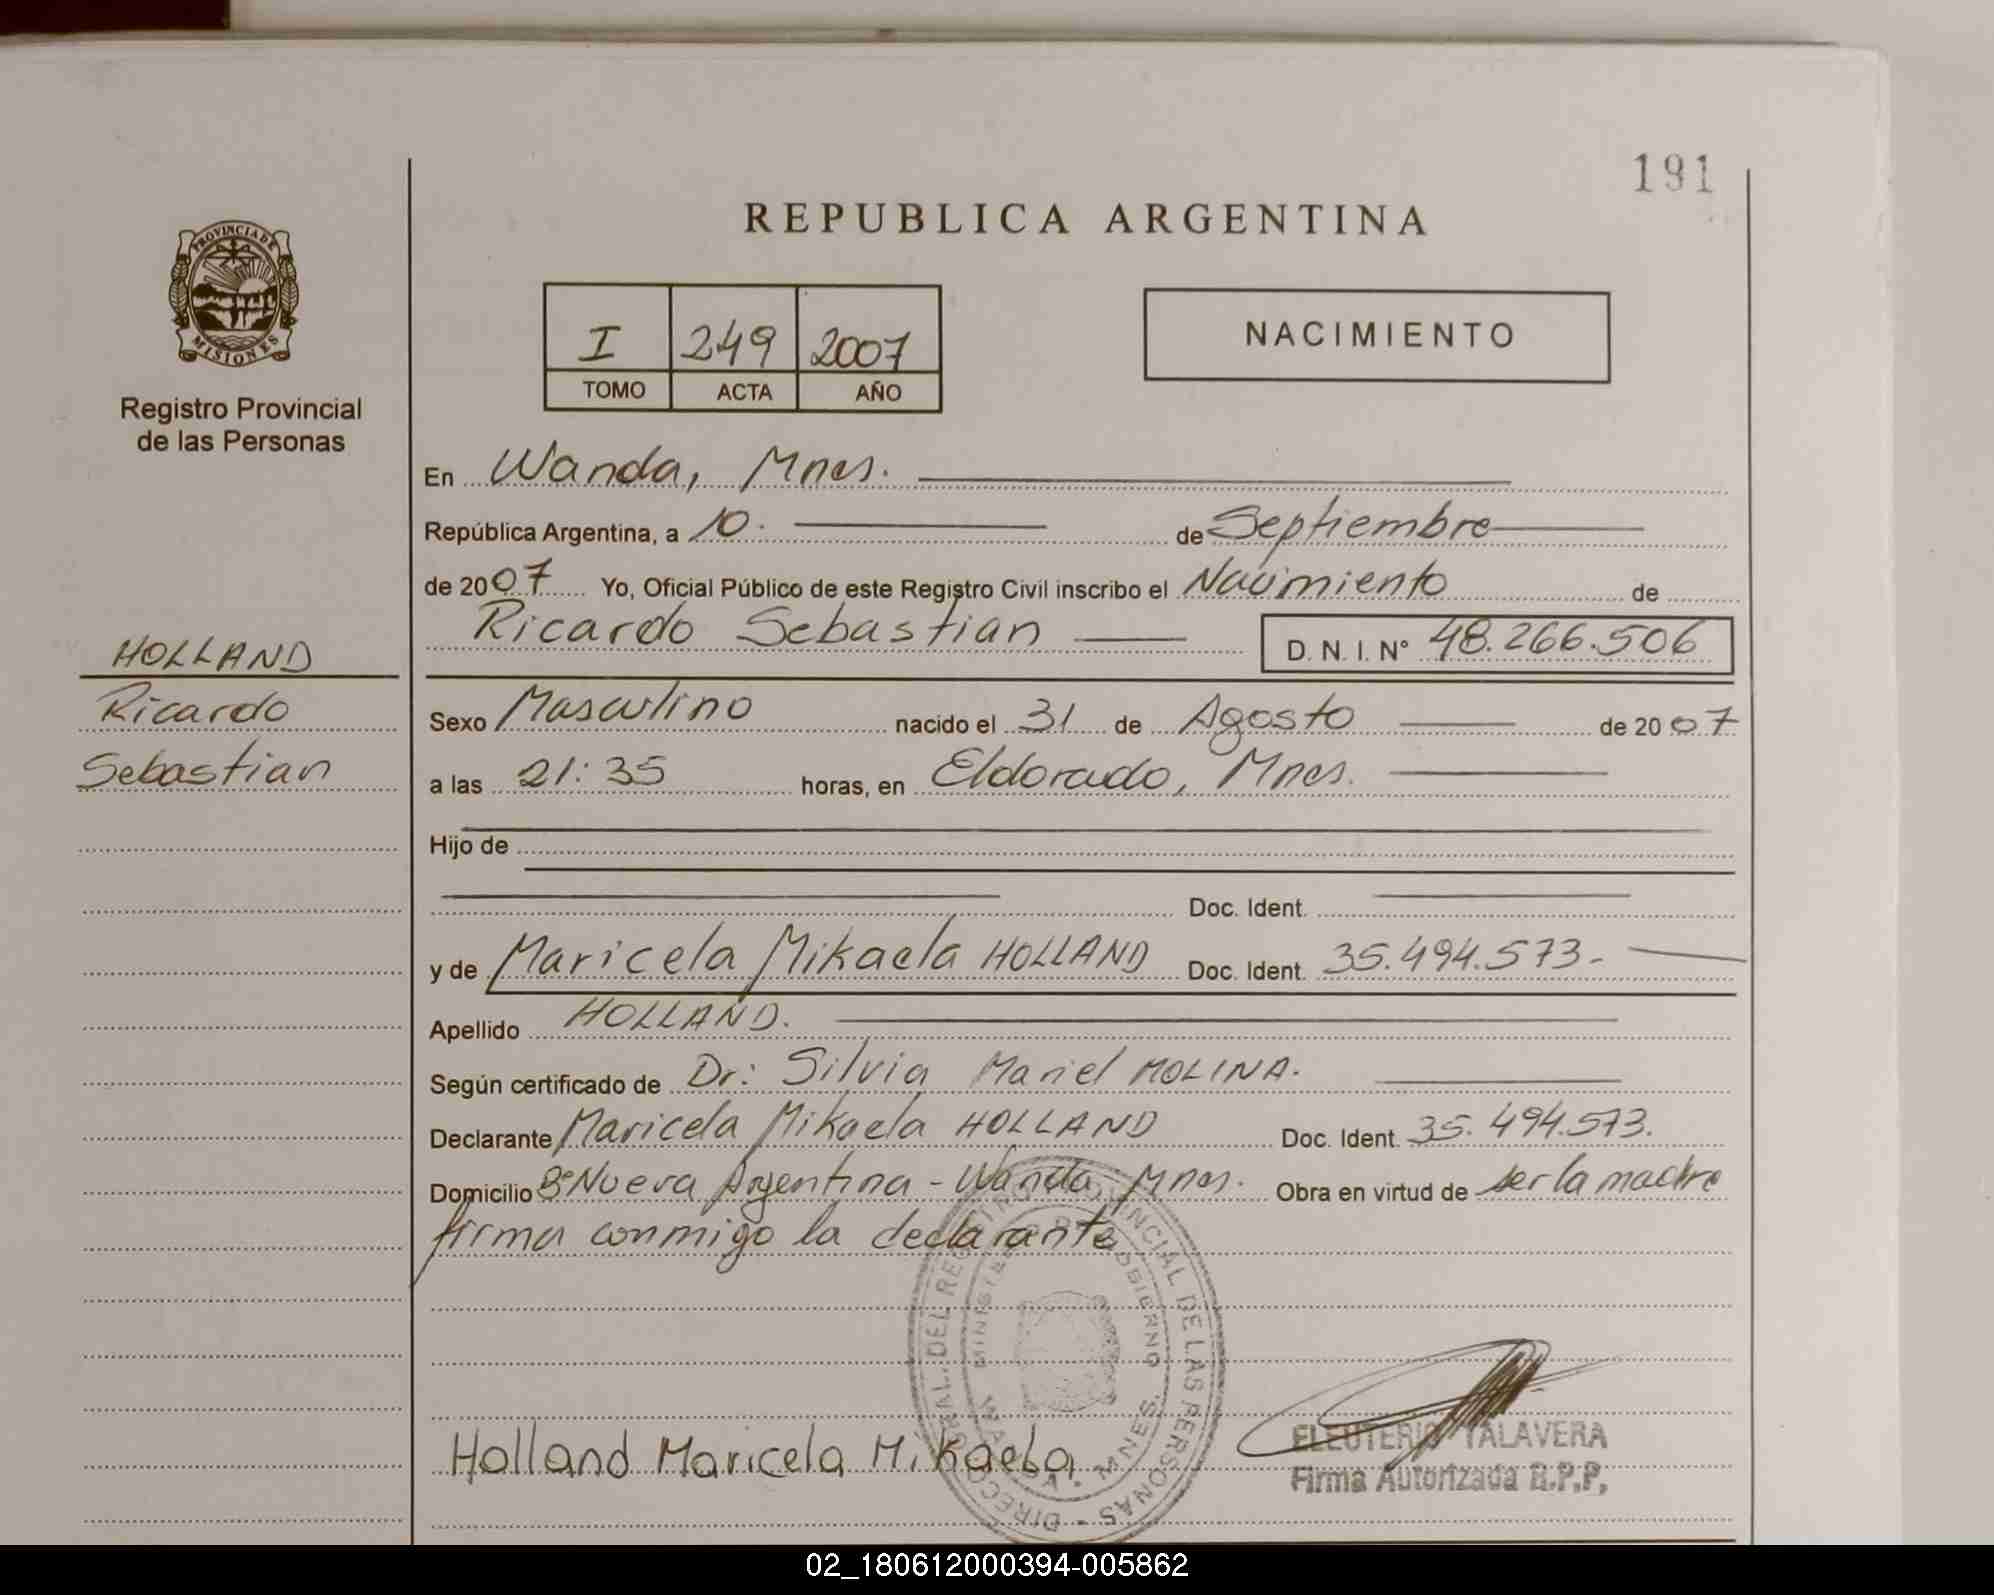 191
REPUBLICA ARGENTINA
PROVINCIA DE
MISIONES
Registro Provincial
de las Personas
I 249 2007
TOMO ACTA AÑO
NACIMIENTO
En Wanda, Mnes.
República Argentina, a 10. de Septiembre
de 2007 Yo, Oficial Público de este Registro Civil inscribo el Nacimiento de
Ricardo Sebastian D. N. I. N° 48.266.506
HOLLAND
Ricardo
Sebastian
Sexo Masculino nacido el 31 de Agosto de 2007
a las 21:35 horas, en Eldorado, Mnes.
Hijo de
Doc. Ident.
y de Maricela Mikaela HOLLAND Doc. Ident. 35.494.573.-
Apellido HOLLAND.
Según certificado de Dr: Silvia Mariel MOLINA.
Declarante Maricela Mikaela HOLLAND Doc. Ident. 35.494.573.
Domicilio B° Nueva Argentina - Wanda Mnes. Obra en virtud de ser la madre
firma conmigo la declarante
Holland Maricela Mikaela
ELEUTERIO TALAVERA
Firma Autorizada R.P.P.
02_180612000394-005862